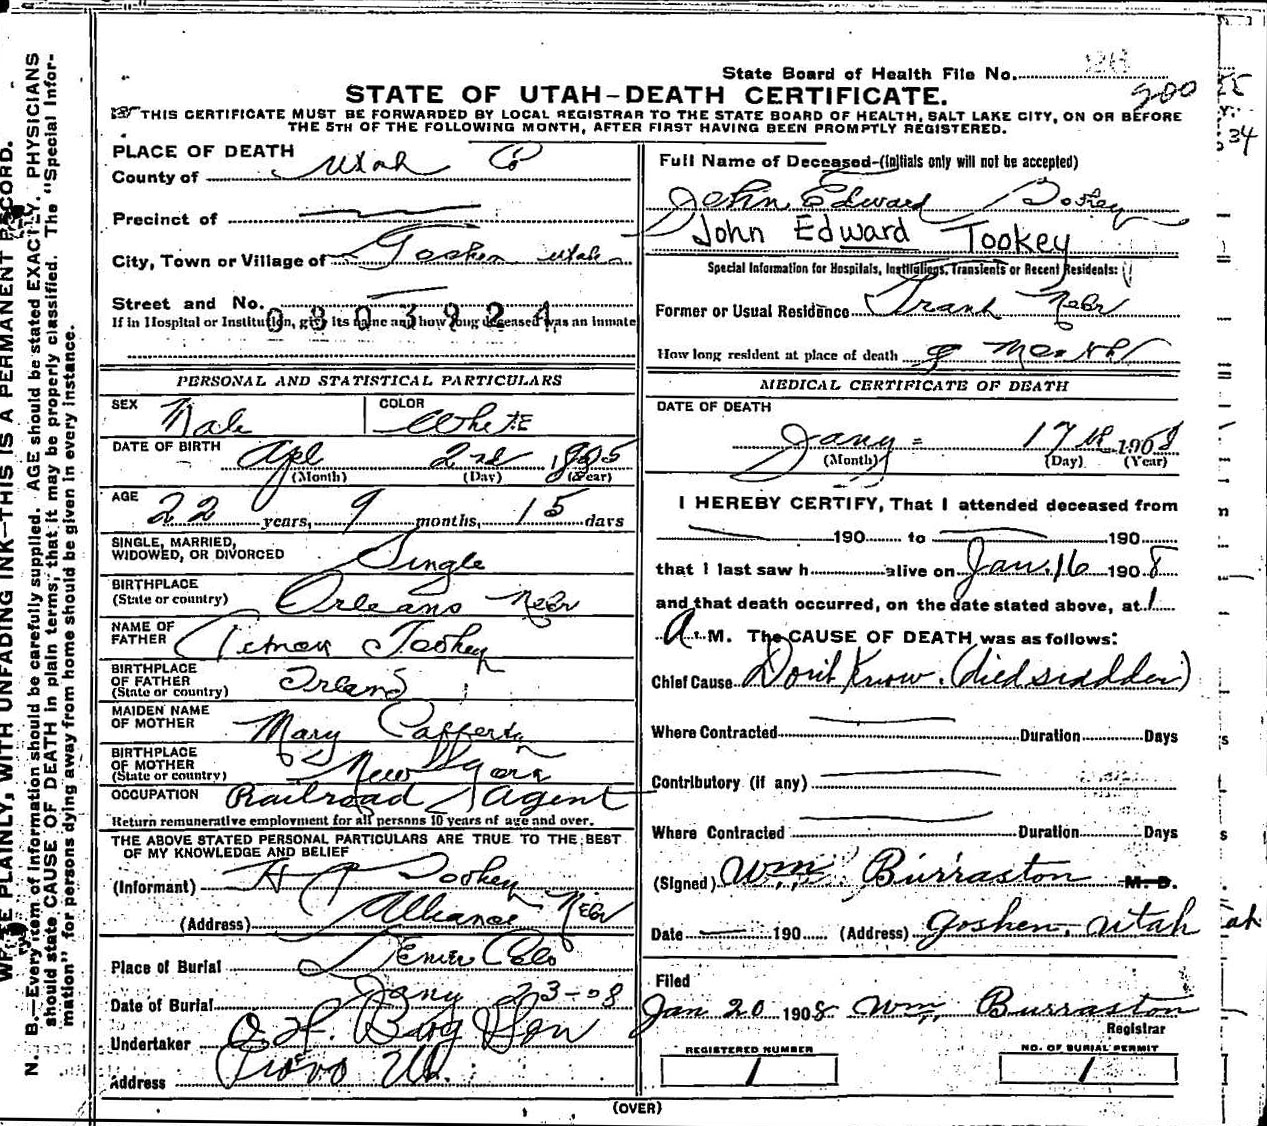 State Board of Health File No.
200
STATE OF UTAH—DEATH CERTIFICATE.
THIS CERTIFICATE MUST BE FORWARDED BY LOCAL REGISTRAR TO THE STATE BOARD OF HEALTH, SALT LAKE CITY, ON OR BEFORE
THE 5TH OF THE FOLLOWING MONTH, AFTER FIRST HAVING BEEN PROMPTLY REGISTERED.
PLACE OF DEATH
County of Utah Co
Precinct of
City, Town or Village of Goshen Utah
Street and No.
0803924
If in Hospital or Institution, give its name and how long deceased was an inmate
PERSONAL AND STATISTICAL PARTICULARS
SEX Male COLOR White
DATE OF BIRTH Apl 2nd 1885
(Month) (Day) (Year)
AGE 22 years, 9 months, 15 days
SINGLE, MARRIED,
WIDOWED, OR DIVORCED Single
BIRTHPLACE
(State or country) Orleans Nebr
NAME OF
FATHER Tookey
BIRTHPLACE
OF FATHER
(State or country)
MAIDEN NAME
OF MOTHER Mary Cafferty
BIRTHPLACE
OF MOTHER
(State or country) New York
OCCUPATION Railroad Agent
Return remunerative employment for all persons 10 years of age and over.
THE ABOVE STATED PERSONAL PARTICULARS ARE TRUE TO THE BEST
OF MY KNOWLEDGE AND BELIEF
(Informant) Tookey
(Address) Alliance Nebr
Place of Burial Denver Colo
Date of Burial Jany 23-08
Undertaker O. H. Berg Son
Address Provo Ut.
Full Name of Deceased—(Initials only will not be accepted)
John Edward Tookey
John Edward Tookey
Special Information for Hospitals, Institutions, Transients or Recent Residents:
Former or Usual Residence Nebr
How long resident at place of death Months
MEDICAL CERTIFICATE OF DEATH
DATE OF DEATH
Jany = 17th 1908
(Month) (Day) (Year)
I HEREBY CERTIFY, That I attended deceased from
190 to 190
that I last saw h alive on Jan. 16 1908
and that death occurred, on the date stated above, at 1
A. M. The CAUSE OF DEATH was as follows:
Chief Cause Don't Know. (died sudden)
Where Contracted Duration Days
Contributory (if any)
Where Contracted Duration Days
(Signed) Wm. Burraston M. D.
Date 190 (Address) Goshen, Utah
Filed
Jan 20 1908 Wm. Burraston
Registrar
REGISTERED NUMBER
1
NO. OF BURIAL PERMIT
1
(OVER)
N. B.—Every item of information should be carefully supplied. AGE should be stated EXACTLY. PHYSICIANS
should state CAUSE OF DEATH in plain terms, that it may be properly classified. The "Special Infor-
mation" for persons dying away from home should be given in every instance.
PLAINLY, WITH UNFADING INK—THIS IS A PERMANENT RECORD.
34